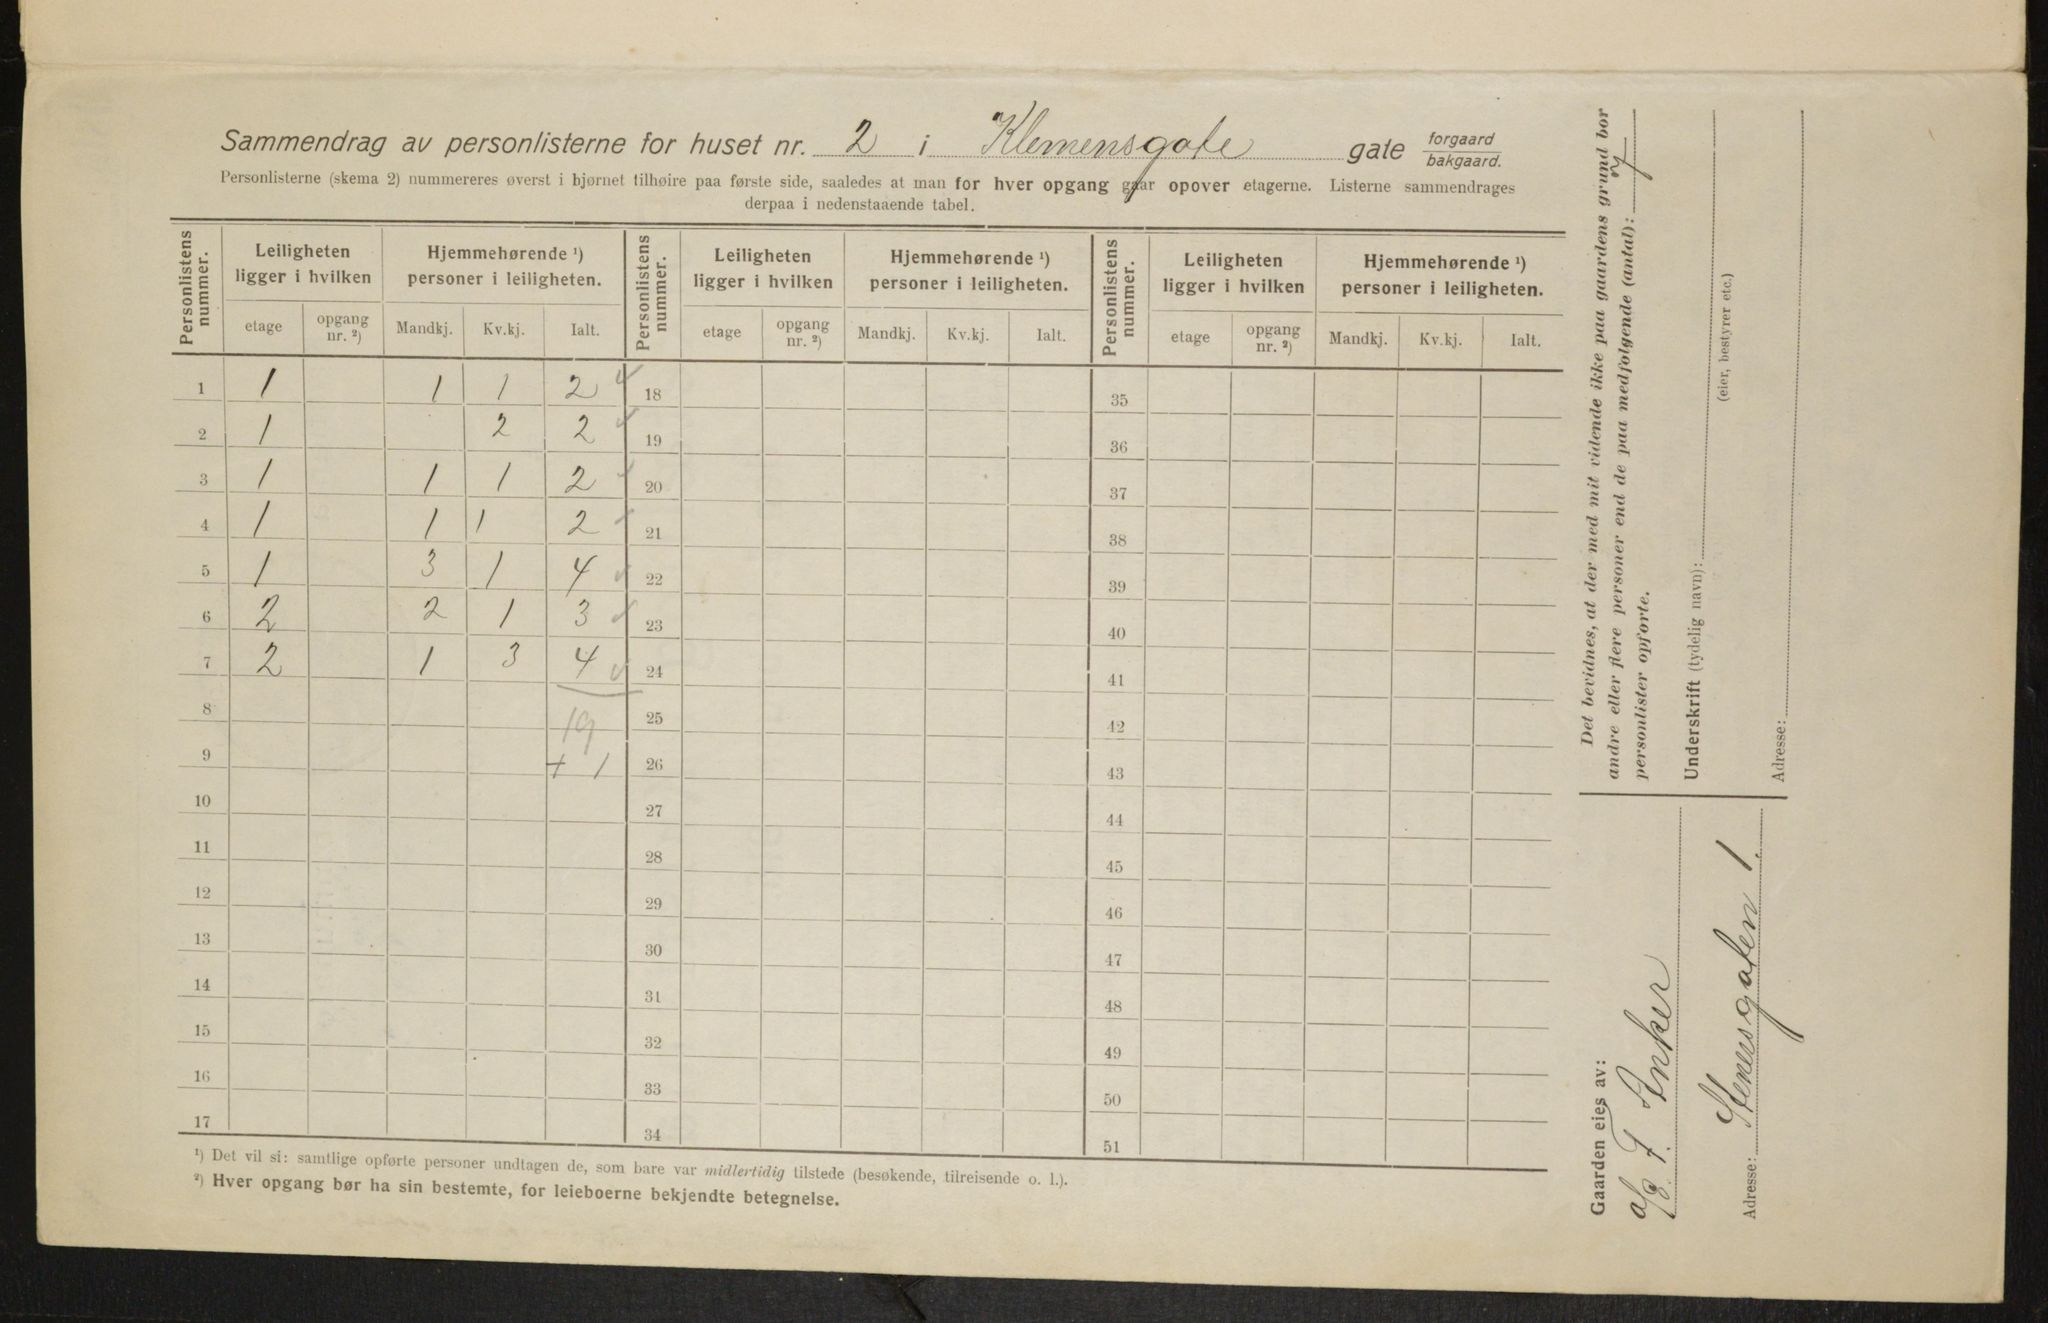 Sammendrag av personlisterne for huset nr. 2 i Klemensgate gate forgaard bakgaard.
Personlisterne (skema 2) nummereres øverst i hjørnet tilhøire paa første side, saaledes at man for hver opgang gaar opover etagerne. Listerne sammendrages
derpaa i nedenstaaende tabel.
Personlistens nummer. Leiligheten ligger i hvilken Hjemmehørende ¹) personer i leiligheten. Personlistens nummer. Leiligheten ligger i hvilken Hjemmehørende ¹) personer i leiligheten. Personlistens nummer. Leiligheten ligger i hvilken Hjemmehørende ¹) personer i leiligheten.
etage opgang nr. ²) Mandkj. Kv.kj. Ialt. etage opgang nr. ²) Mandkj. Kv.kj. Ialt. etage opgang nr. ²) Mandkj. Kv.kj. Ialt.
1 1 1 1 2 18 35
2 1 2 2 19 36
3 1 1 1 2 20 37
4 1 1 1 2 21 38
5 1 3 1 4 22 39
6 2 2 1 3 23 40
7 2 1 3 4 24 41
8 19 25 42
9 + 1 26 43
10 27 44
11 28 45
12 29 46
13 30 47
14 31 48
15 32 49
16 33 50
17 34 51
¹) Det vil si: samtlige opførte personer undtagen de, som bare var midlertidig tilstede (besøkende, tilreisende o. l.).
²) Hver opgang bør ha sin bestemte, for leieboerne bekjendte betegnelse.
Gaarden eies av:
F. Inker
Adresse: Stenersgaten 1.
Det bevidnes, at der med mit vidende ikke paa gaardens grund bor
andre eller flere personer end de paa medfolgende (antal): 7
personlister opforte.
Underskrift (tydelig navn):
(eier, bestyrer etc.)
Adresse: